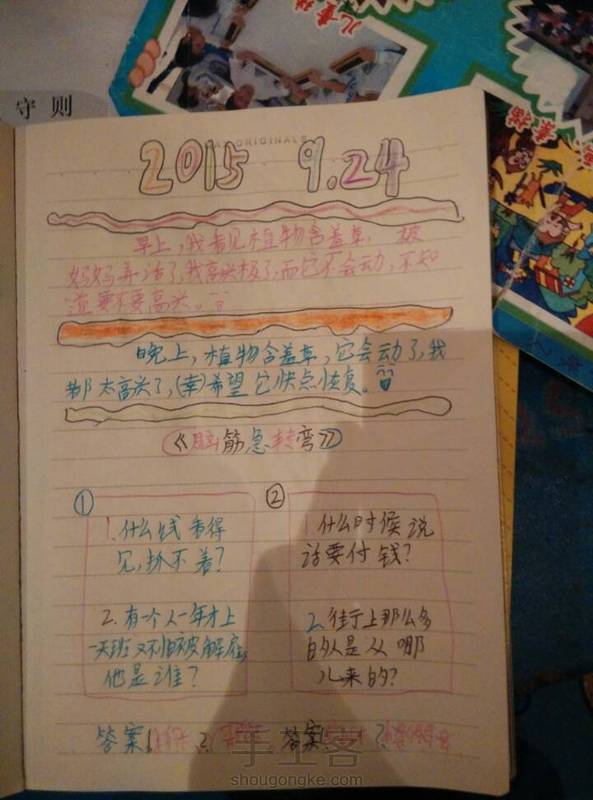 守则
儿童福
ORIGINALS
2015 9.24
早上,我看见植物含羞草 被
妈妈弄活了,我高兴极了,而它不会动,不知
道要不要高兴。
晚上,植物含羞草,它会动了,我
那太高兴了,(幸)希望它快点恢复。
《脑筋急转弯》
① ②
1.什么钱看得
见,抓不着?
2.有一个人一年才上
天班又不怕被解雇
他是谁?
1什么时候说
话要付钱?
2.街上那么多
的人是从哪
儿来的?
答案1. 2. 答案1 2.
手工客
shougongke.com